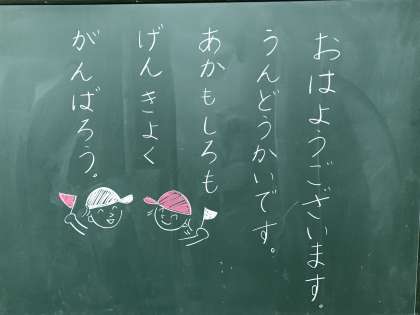 おはようございます。
うんどうかいです。
あかもしろも
げんきよく
がんばろう。